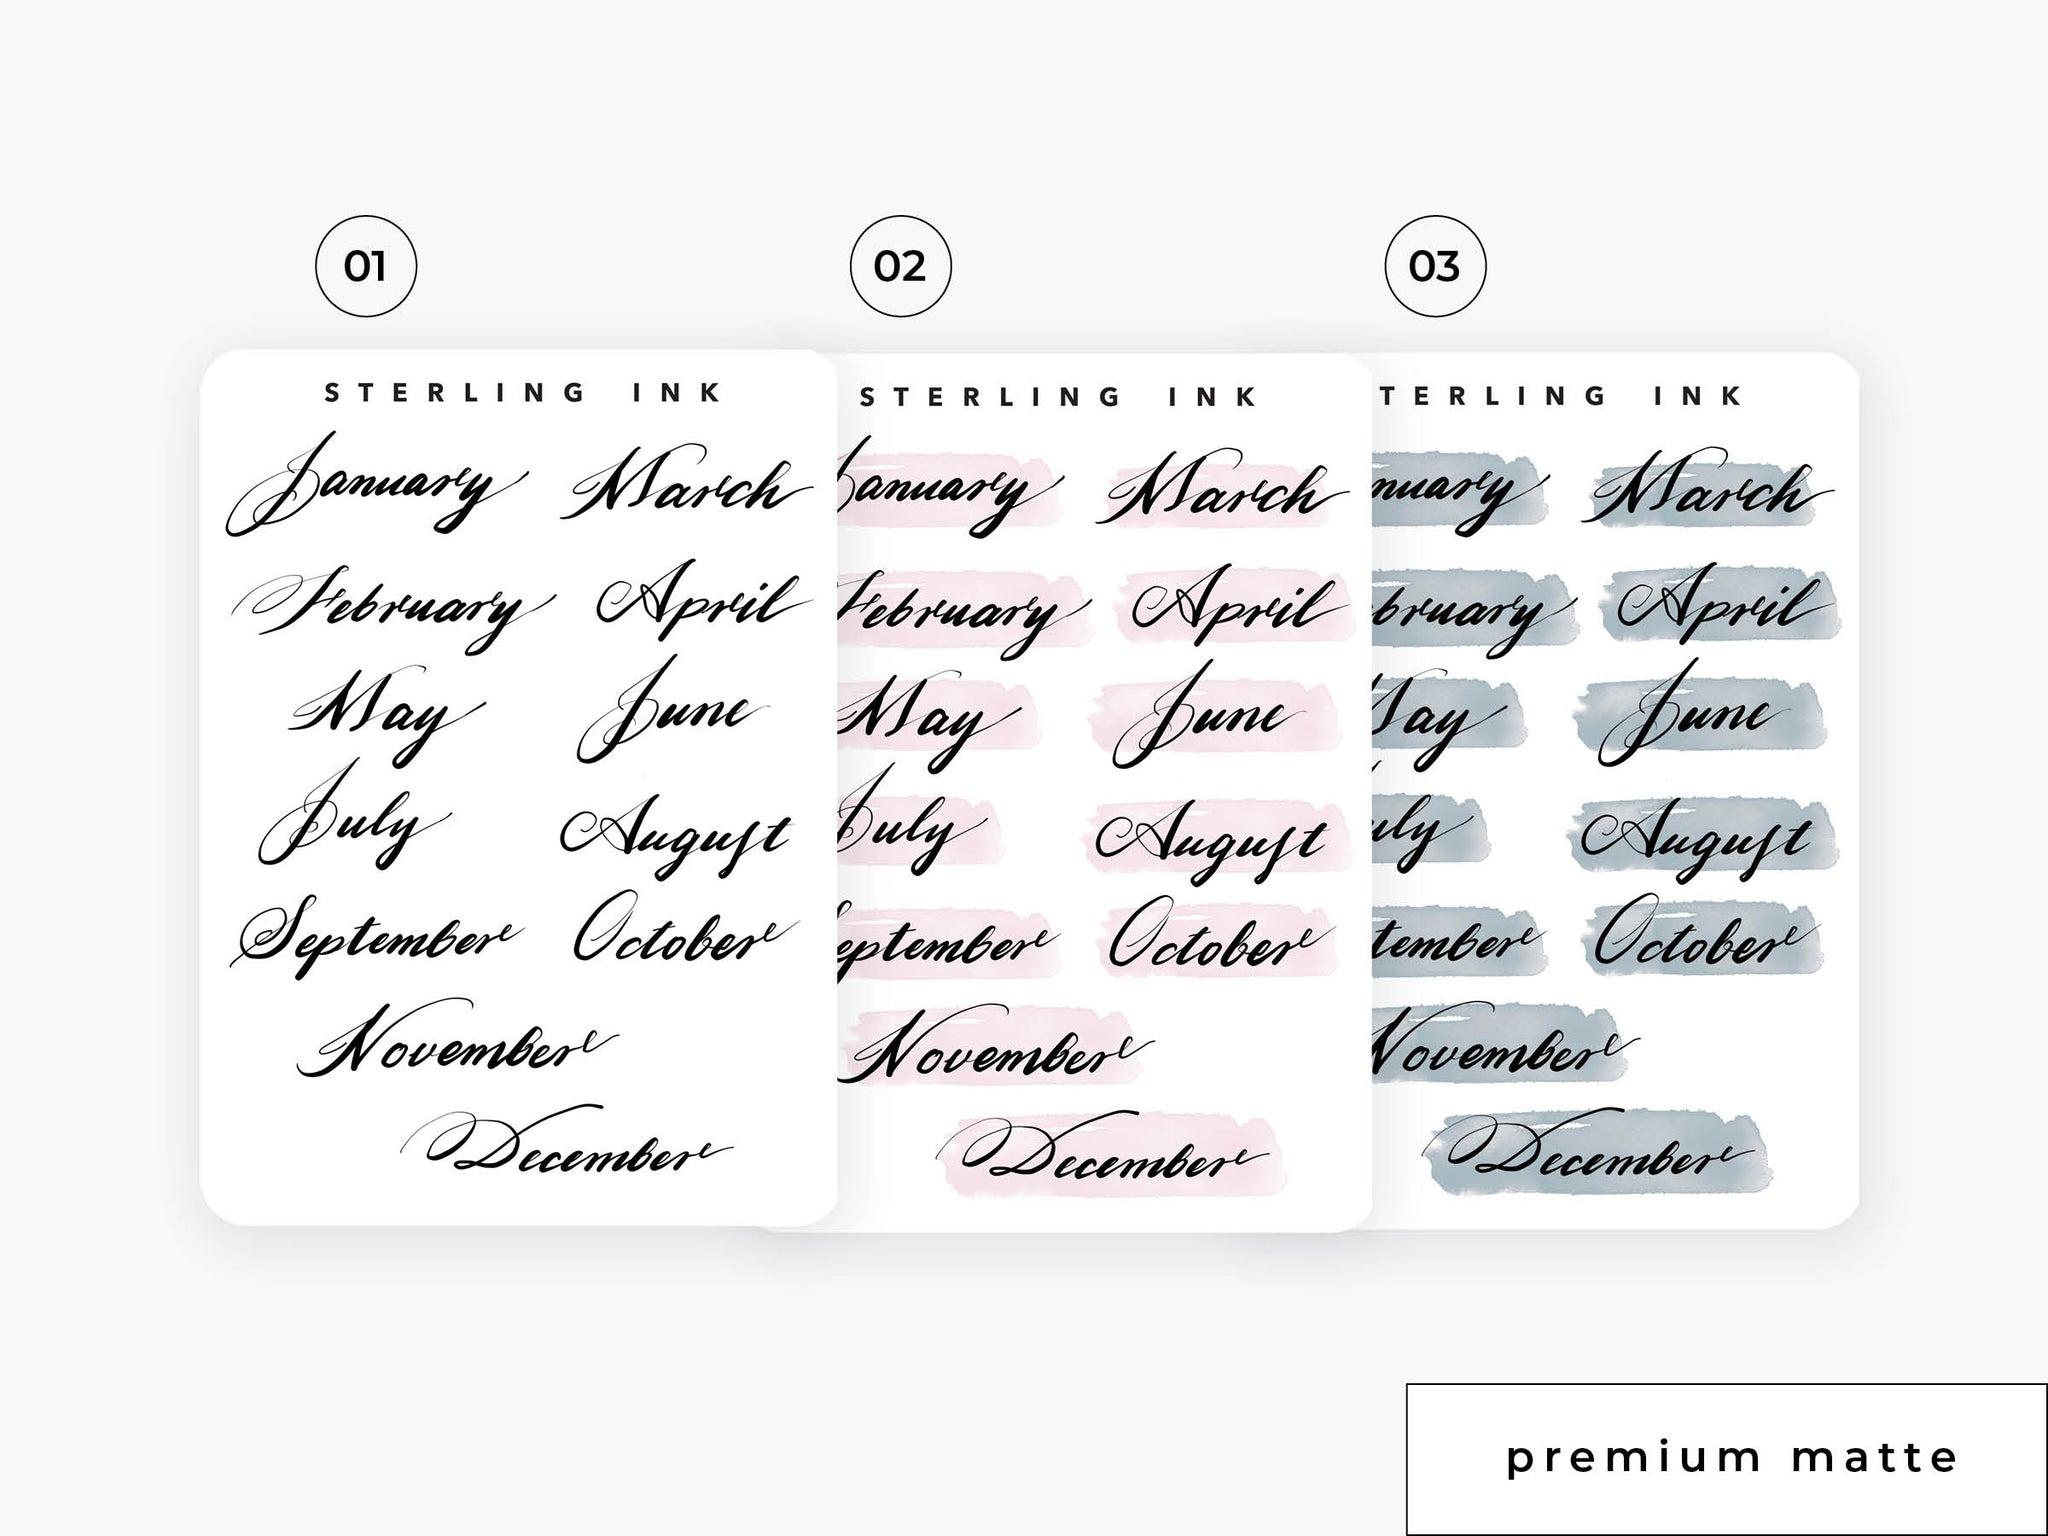 01
STERLING INK
January March
February April
May June
July August
September October
November
December
02
STERLING INK
January March
February April
May June
July August
September October
November
December
03
TERLING INK
nuary March
bruary April
May June
uly August
tember October
November
December
premium matte